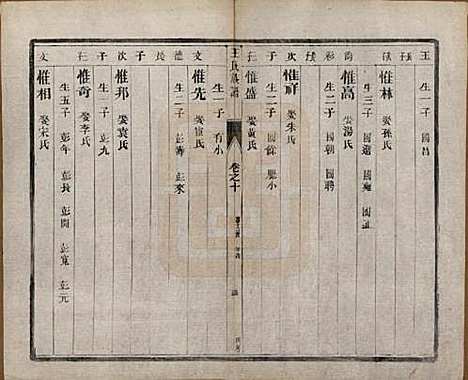 王 生一子 國昌
惟林 娶孫氏
生三子 國
尚 惟高 娶湯氏
彩 生二子 國朝 國聘
次 惟祥 娶朱氏
子 生二子 國
惟盛 娶黃氏
生一子 有小
王氏族譜
卷之十
文 惟先 娶
德 生二子 彭壽 彭來
子
次 惟邦 娶袁氏
子 彭九
惟奇 娶李氏
文 惟相 娶宋氏
生五子 彭年 彭長 彭開 彭寬 彭元